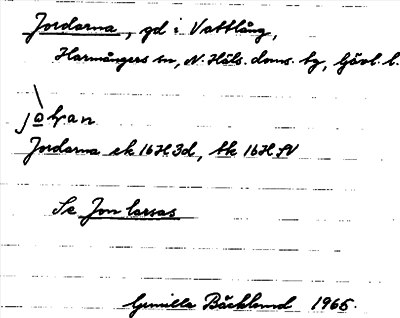 Jordarna, gd i Vattlång,
Harmångers sn, N. Häls. doms. bg, Gävl. l.
Jordarna ek 16H3d, tk 16H SV
Se Jon larsas
Gunilla Bäcklund 1965.